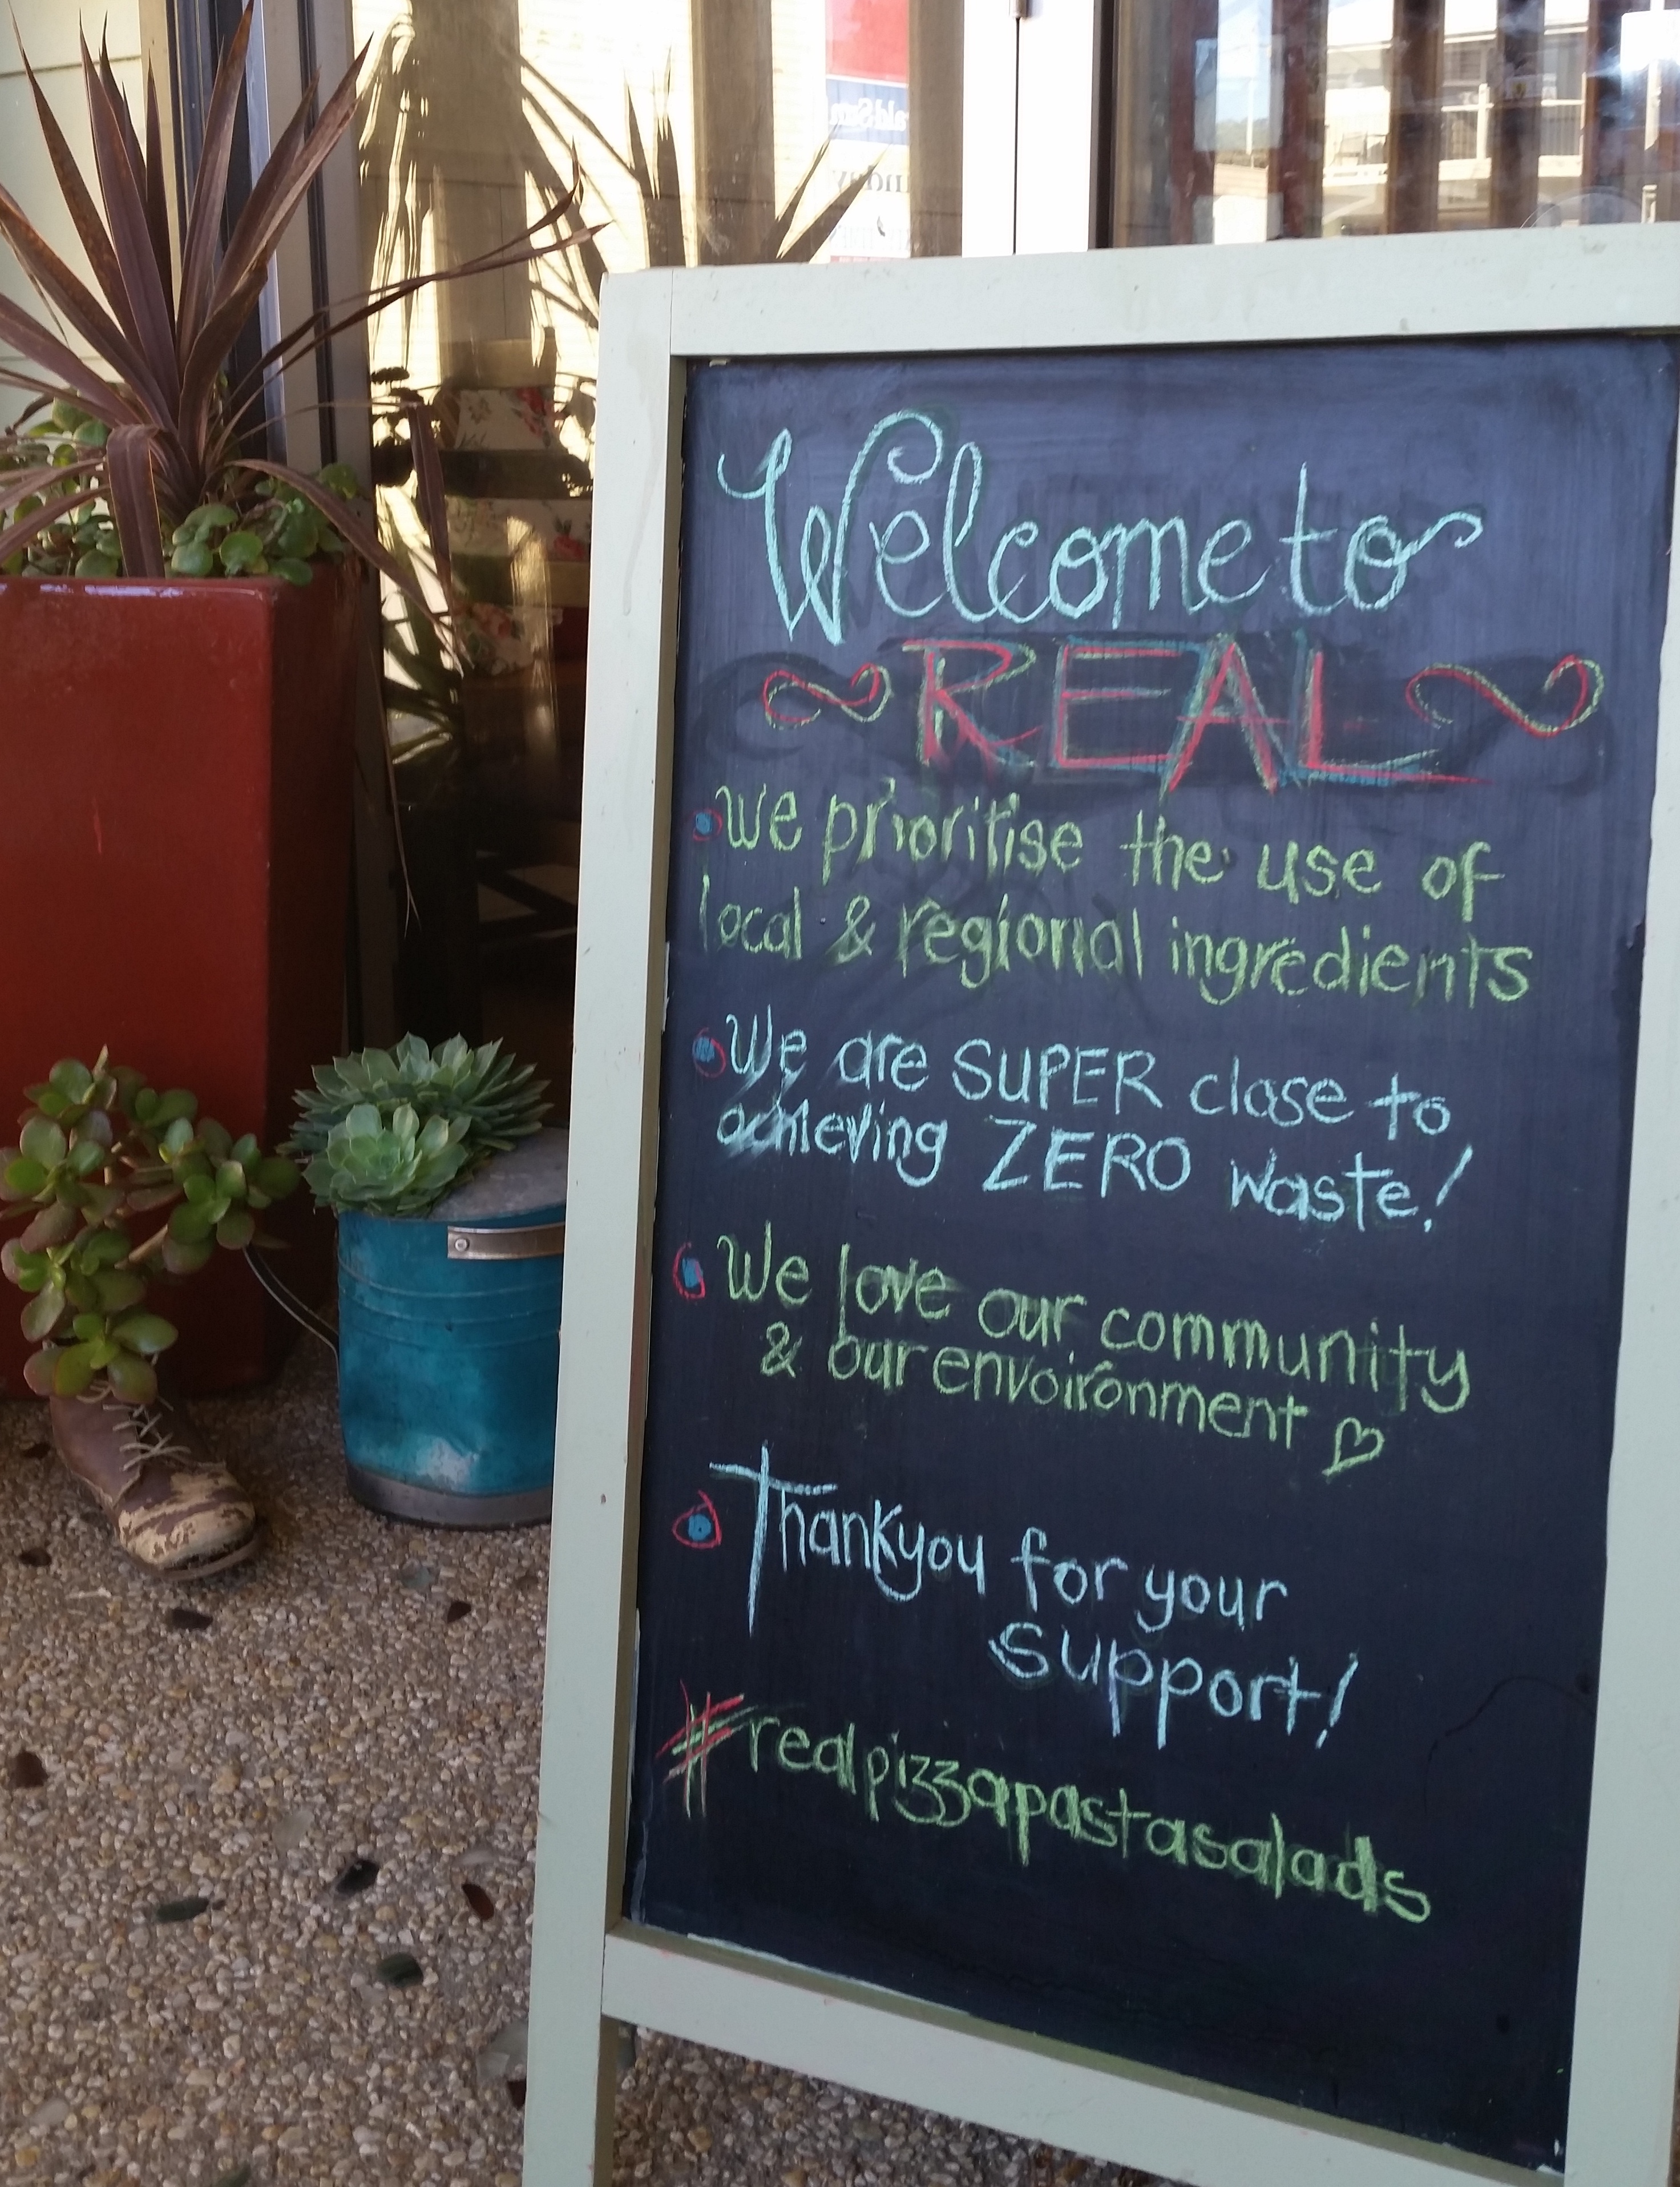 Welcome to
REAL
We prioritise the use of
local & regional ingredients
We are SUPER close to
achieving ZERO waste!
We love our community
& our envoironment
Thankyou for your
support!
#realpizzapastasalads